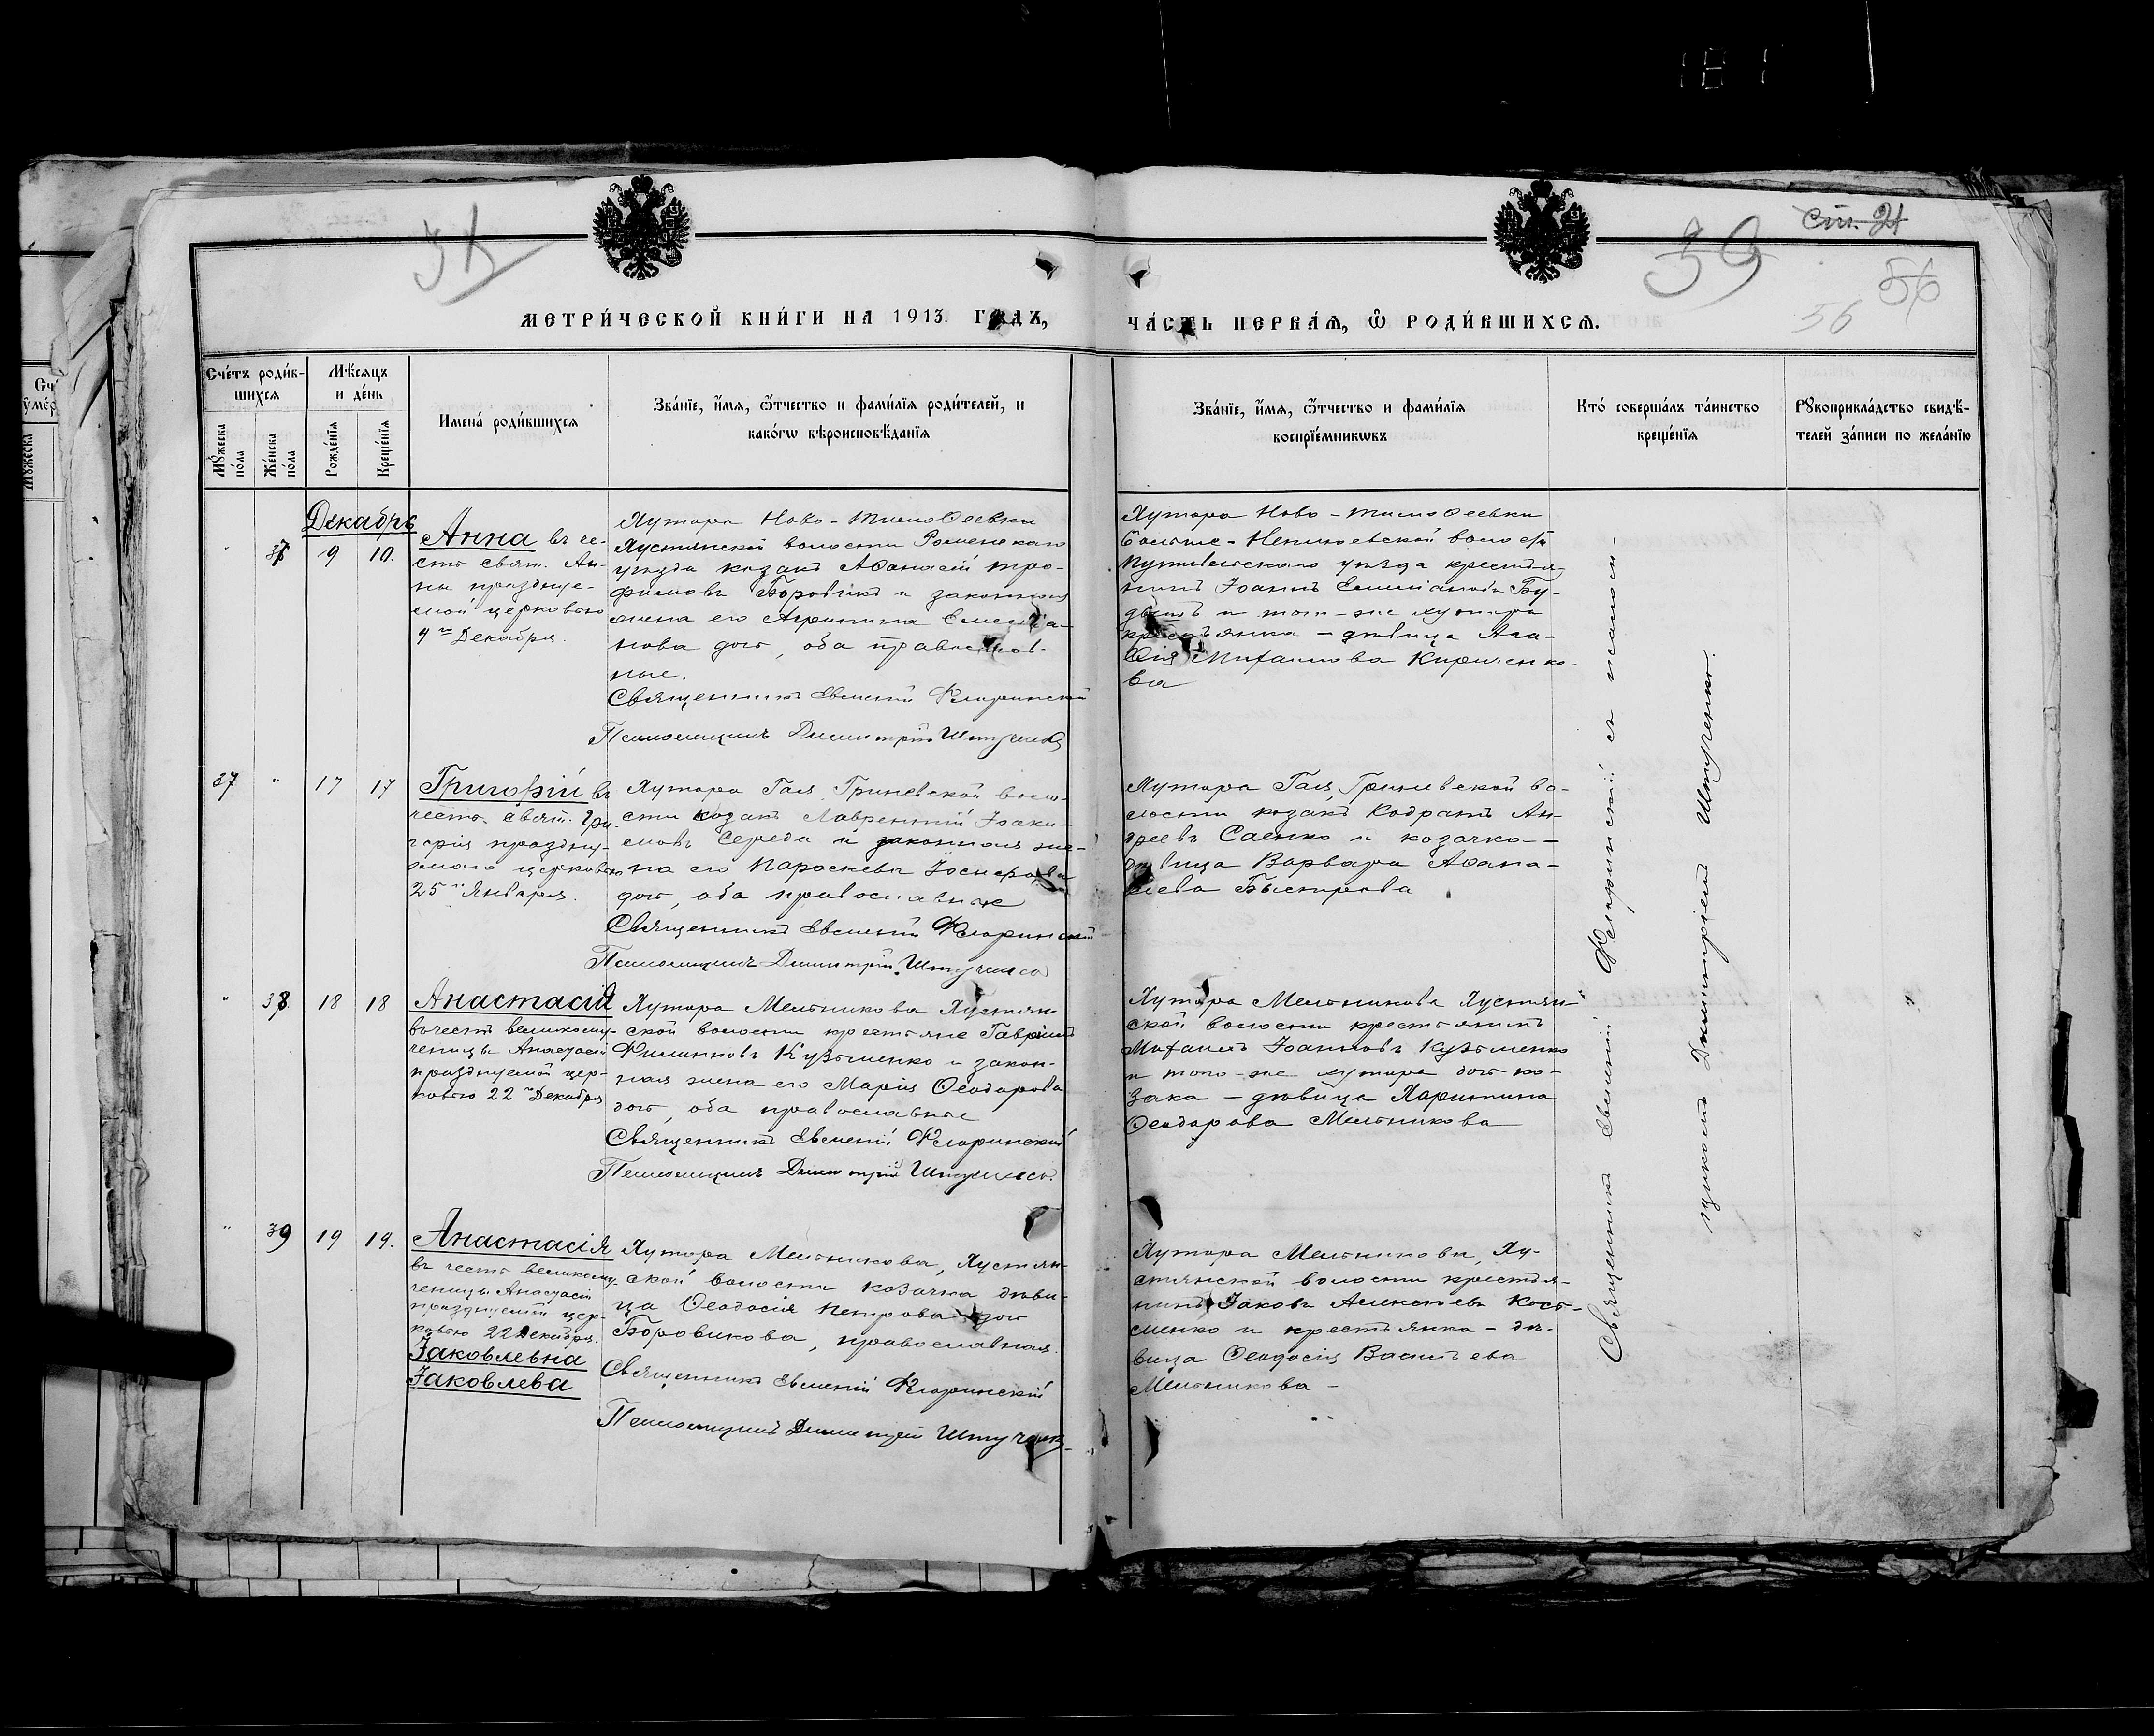 181
39
Ст. 21
56
56
МЕТРИ́ЧЕСКОЙ КНИ́ГИ НА 1913. ГОДЪ,
ЧА́СТЬ ПЕРВАѦ, Ѽ РОДИ́ВШИХСѦ.
Сче́тъ роди́в-
шихсѧ
Мꙋжеска по́ла
Же́нска по́ла
Мѣ́сѧцъ
и де́нь
Рожде́нїѧ
Креще́нїѧ
Имена́ роди́вшихсѧ
Зва́нїе, и҆́мѧ, ѻ҆́тчество и фами́лїѧ роди́телей, и
како́гѡ вѣроисповѣ́данїѧ
Зва́нїе, и҆́мѧ, ѻ҆́тчество и фами́лїѧ
воспрїе́мникѡвъ
Кто́ соверша́лъ та́инство
креще́нїѧ
Рꙋкоприкла́дство свидѣ́-
телей за́писи по жела́нїю
Декабрь
37 9 10.
Анна въ че-
сть свят. Ан-
ны праздмуе-
мой церковью
9 го Декабря.
Хутора Ново-Тимоѳеевки
Хустянской волости Роменскаго
уѣзда козакъ Аѳанасій Тро-
фимовъ Боровикъ и законная
жена его Агрипина Емелiа-
нова дочь, оба православ-
ные.
Священникъ Евменій Флоринскій
Псаломщикъ Димитрій Штученко
Хутора Ново-Тимоѳеевки
Больше-Неплюевской волости
Путивльскаго уѣзда крестья-
нинъ Іоаннъ Емелiановъ
и того-же хутора
крестьянка-дѣвица Ага-
ѳія Михаилова Кириленко-
ва
37 " 17 17
Григорій въ
честь свят. Гри-
горія праздну-
емаго церковью
25 го Января.
Хутора Гая, Гриневской воло-
сти козакъ Лаврентій Іоаки-
мовъ Середа и законная же-
на его Параскева Іосифова
дочь, оба православные
Священникъ Евменій Флоринскій
Псаломщикъ Димитрій Штученко
Хутора Гая, Гриневской во-
лости козакъ Кодратъ Ан-
дреевъ Саенко и козачка-
дѣвица Варвара Аѳана-
сіева Быстрова
" 38 18 18
Анастасія
въ честь великому-
ченицы Анастасіи
празднуемой цер-
ковью 22 го Декабря
Хутора Мельникова Хустян-
ской волости крестьяне Гавріилъ
Филипповъ Кузьменко и закон-
ная жена его Марія Ѳеодорова
дочь, оба православные
Священникъ Евменій Флоринскій
Псаломщикъ Димитрій Штученко.
Хутора Мельникова Хустян-
ской волости крестьянинъ
Михаилъ Іоанновъ Кузьменко
и того-же хутора дочь ко-
зака - дѣвица Харитина
Ѳеодорова Мельникова
" 39 19 19.
Анастасія
въ честь великому-
ченицы Анастасіи
празднуемой цер-
ковью 22 Декабря.
Іаковлевна
Іаковлева
Хутора Мельникова, Хустян-
ской волости козачка дѣви-
ца Ѳеодосія Петрова дочь
Боровикова, православная.
Священникъ Евменій Флоринскій
Псаломщикъ Димитрій Штученко
Хутора Мельникова, Ху-
стянской волости крестья-
нинъ Іаковъ Алексѣевъ
и крестьянка - дѣ-
вица Ѳеодосія Васильева
Мельникова -
Священникъ Евменій Флоринскій съ псалом-
щикомъ Димитріемъ Штученко.